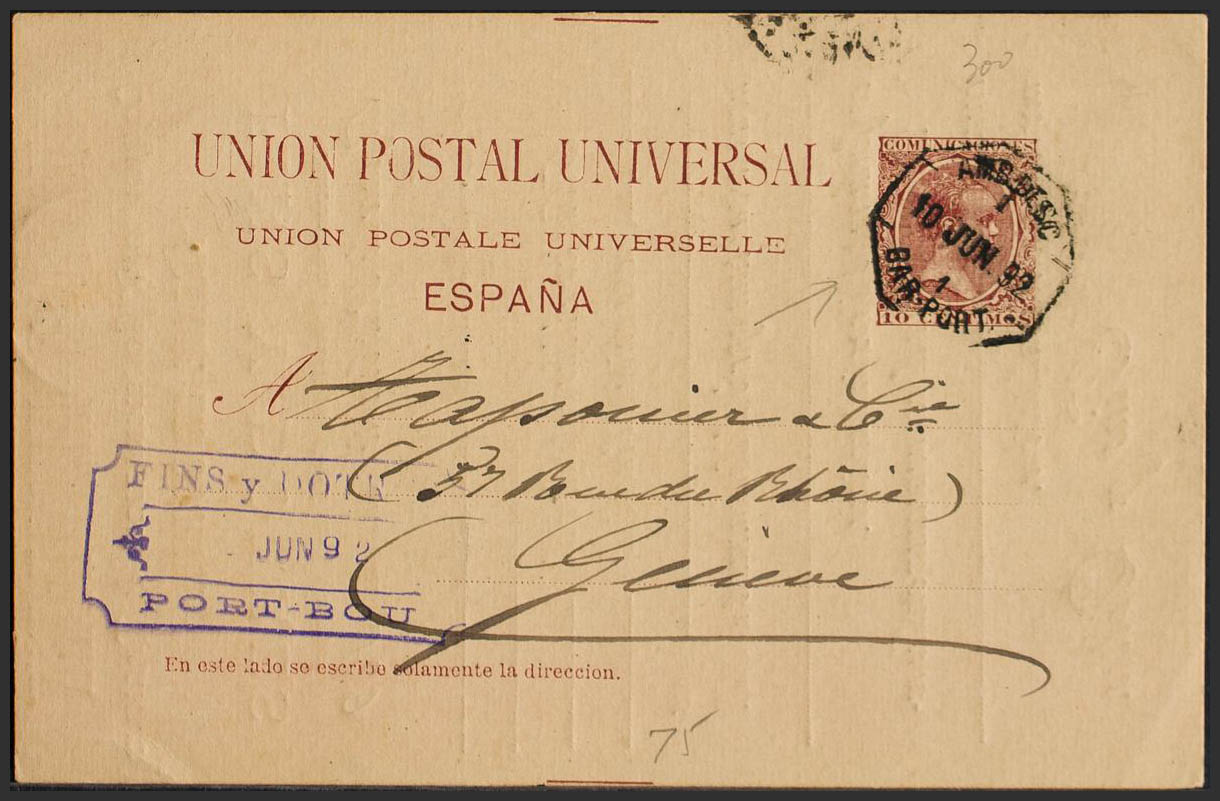 300
UNION POSTAL UNIVERSAL
UNION POSTALE UNIVERSELLE
ESPAÑA
COMUNICACIONES
10 CENTIMOS
AMB. DESC
1
10 JUN. 92
1
BAR-PORT.
A Maponier & Cie
(37 Rue du Rhône)
Genève
FINS y
JUN 92
PORT-BOU
En este lado se escribe solamente la direccion.
75